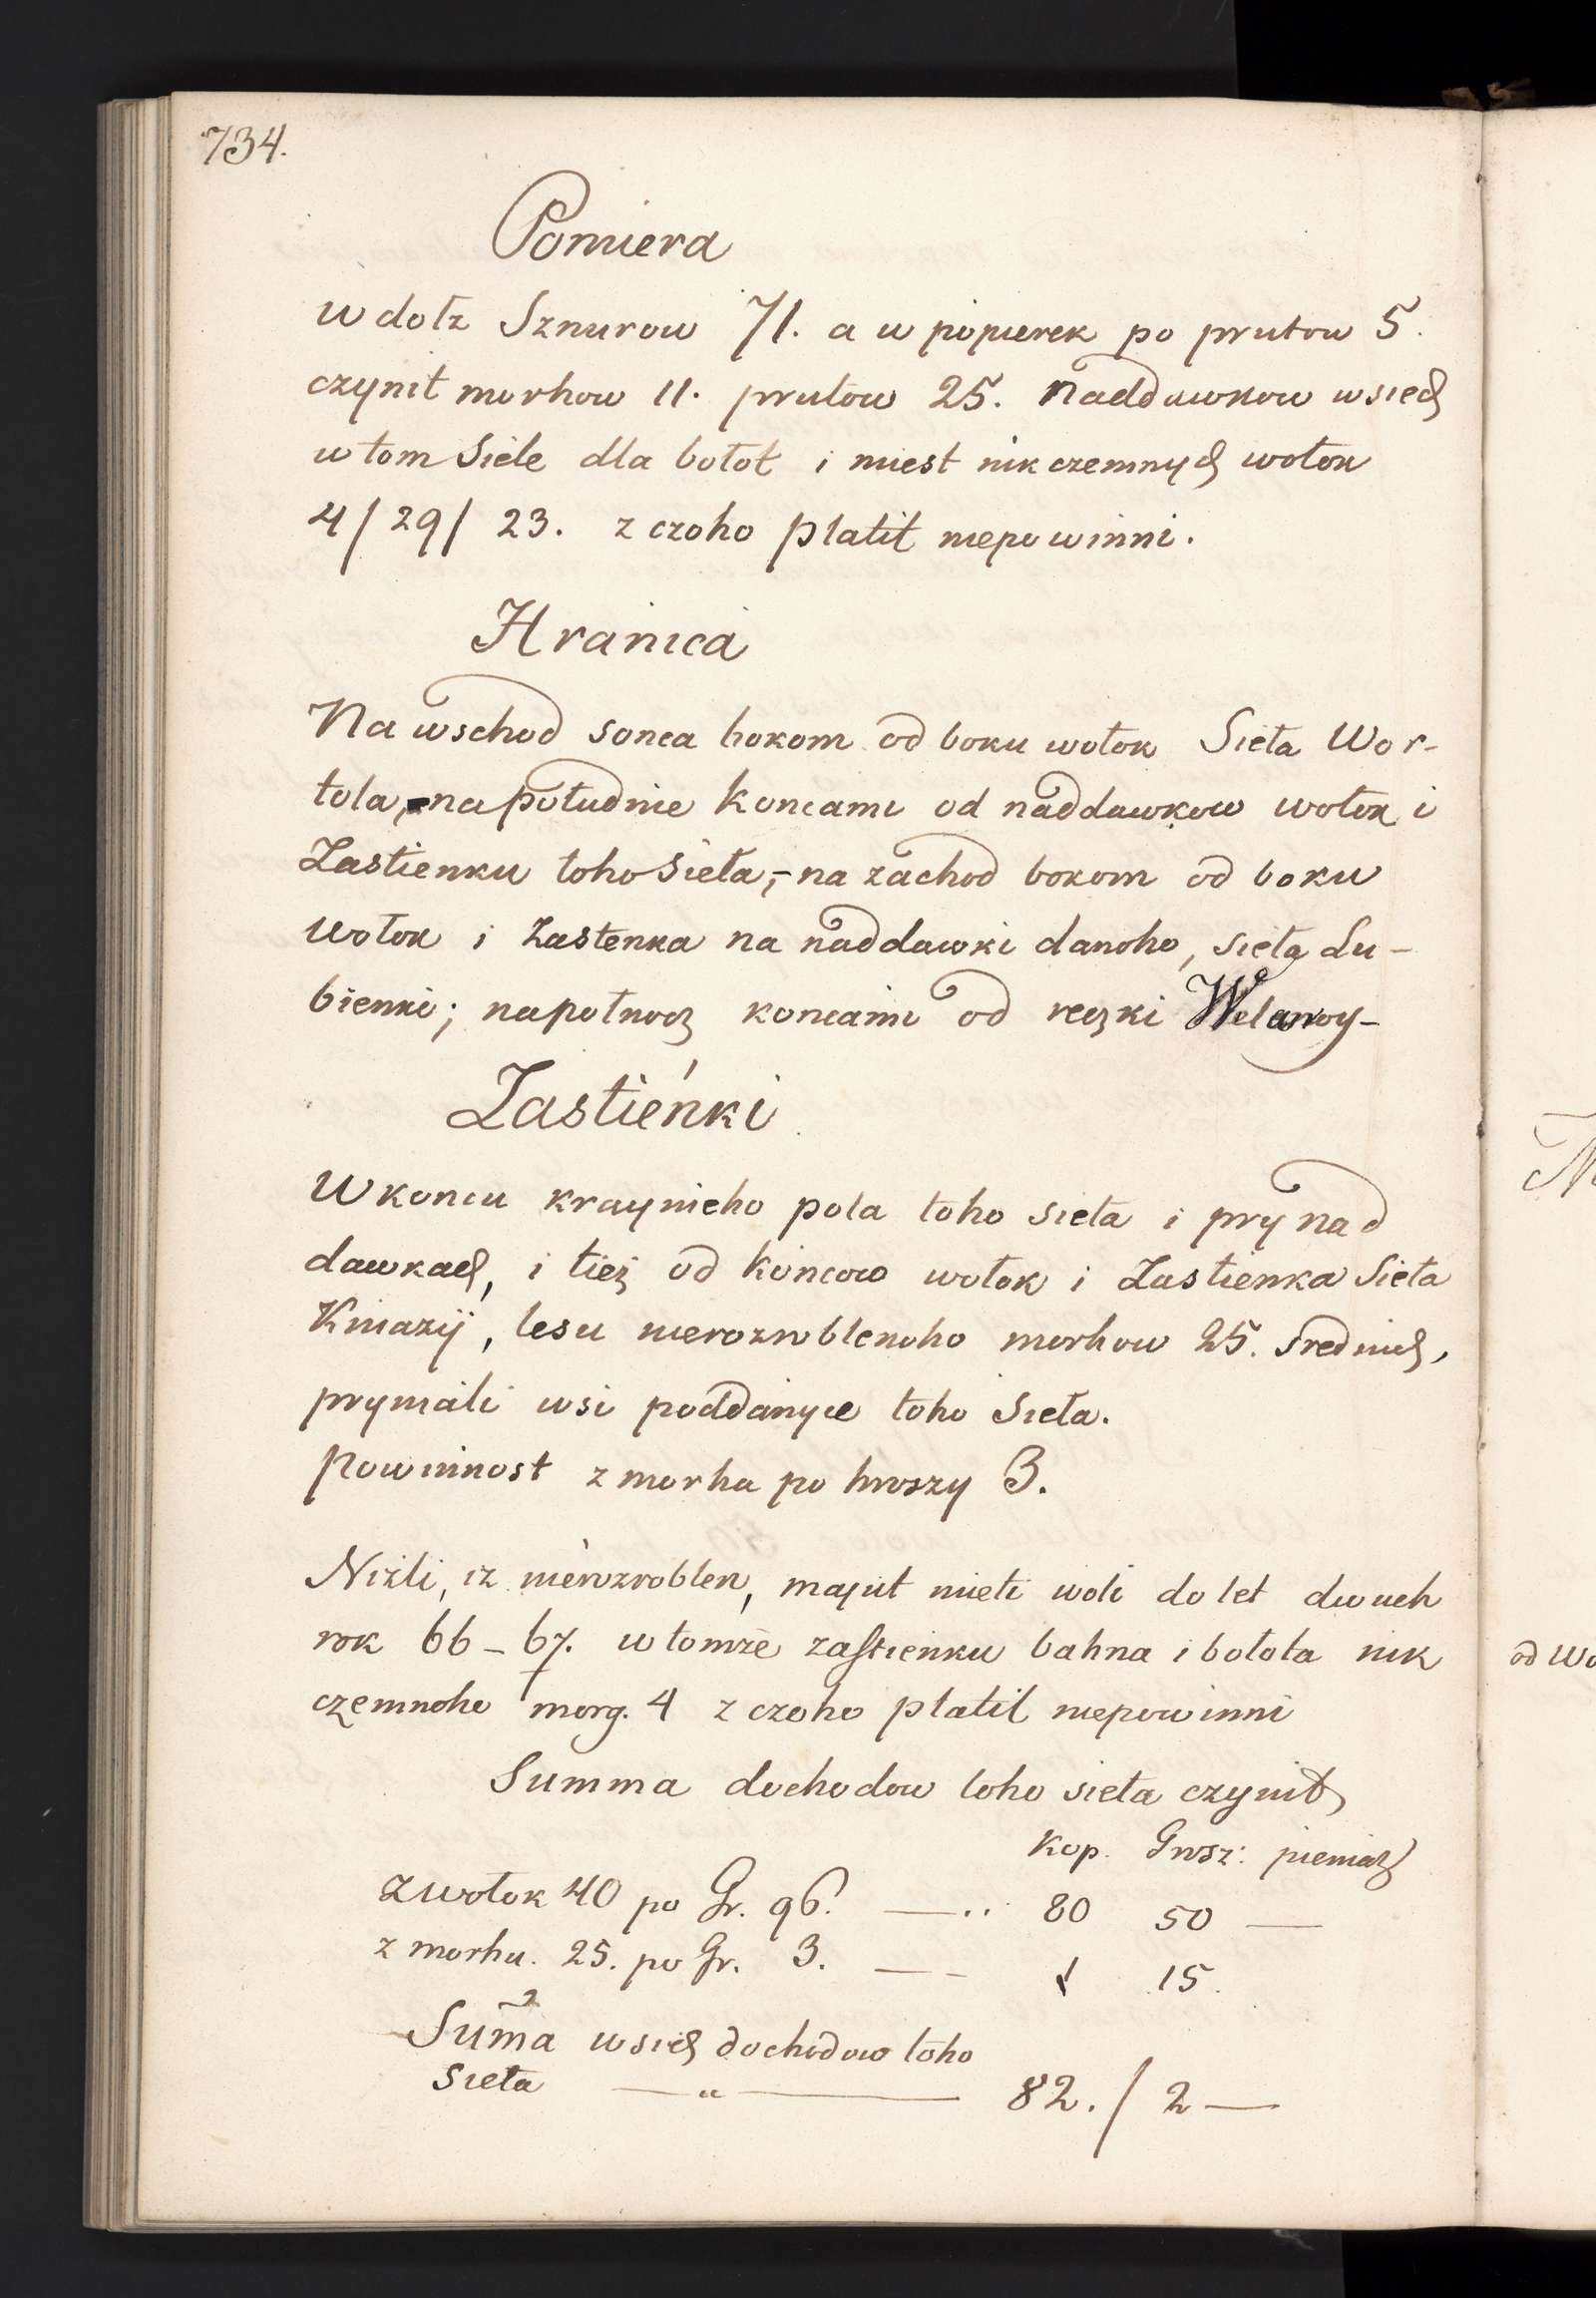 734.
Pomiera
w dołz Sznurow 71. a w popierek po prutow 5.
czynit morhow 11. prutow 25. Naddawkow wsiech
w tom Siele dla bołot i miest nikczemnych wołok
4/29/23. z czoho płatit niepowinni.
Hranica
Na wschod sonca bokom od boku wołok Sieła Wor-
tola, na południe koncami od naddawkow wołok i
Zastienku toho sieła, - na zachod bokom od boku
wołok i zastenka na naddawki danoho, sieła Lu-
bienki; na połnocz koncami od reczki Welawoy -
Zastieńki
W koncu kraynieho pola toho sieła i pry nad
dawkach, i tież od koncow wołok i Zastienka Sieła
Kniazij, lesu nierozroblenoho morhow 25. srednich,
prymali wsi poddanyie toho Sieła.
Powinnost z morha po hroszy 3.
Niżli, iz nierozroblen, majut mieti woli do let dwuch
rok 66 - 67. w tomże zastienku bahna i bołota nik
czemnoho morg. 4 z czoho płatit niepowinni
Summa dochodow toho sieła czynit
Kop. Grosz: pieniaz
z wołok 40 po Gr. 96. — .. 80 50 —
z morhu. 25. po Gr. 3. — - 1 15.
Summa wsich dochodow toho
Sieła — „ — 82. / 2 —
N
od Wo